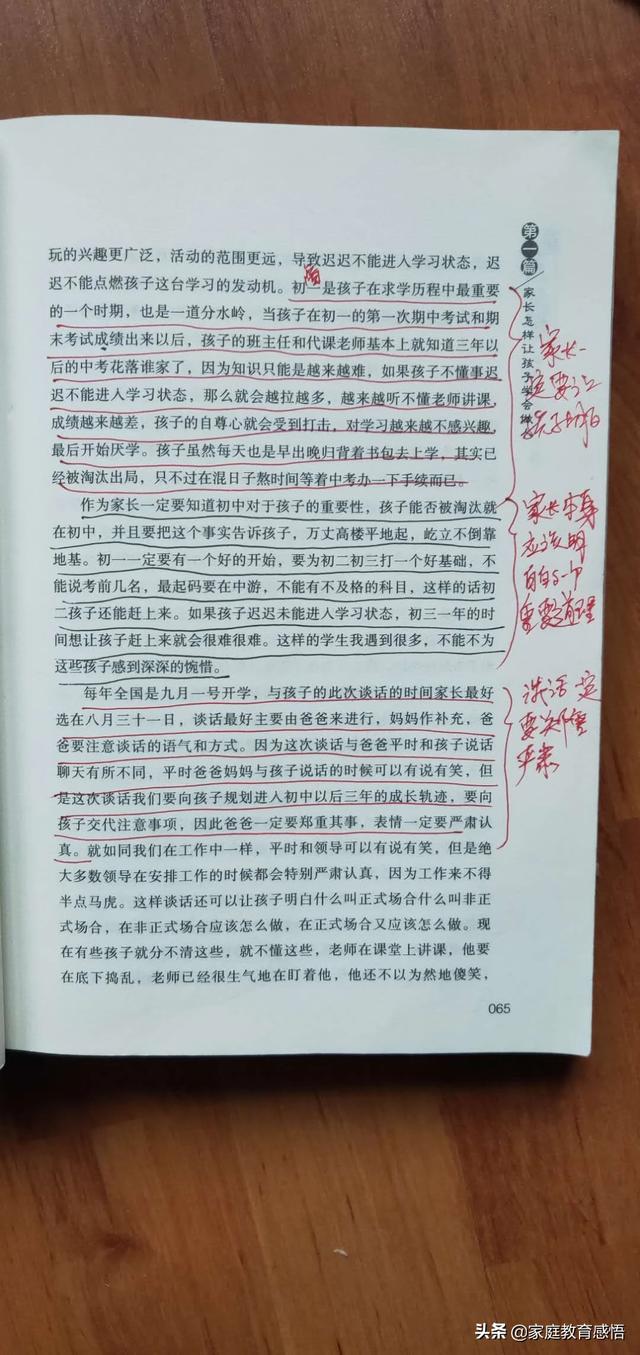 玩的兴趣更广泛，活动的范围更远，导致迟迟不能进入学习状态，迟
迟不能点燃孩子这台学习的发动机。初一是孩子在求学历程中最重要
的一个时期，也是一道分水岭，当孩子在初一的第一次期中考试和期
末考试成绩出来以后，孩子的班主任和代课老师基本上就知道三年以
后的中考花落谁家了，因为知识只能是越来越难，如果孩子不懂事迟
迟不能进入学习状态，那么就会越拉越多，越来越听不懂老师讲课，
成绩越来越差，孩子的自尊心就会受到打击，对学习越来越不感兴趣，
最后开始厌学。孩子虽然每天也是早出晚归背着书包去上学，其实已
经被淘汰出局，只不过在混日子熬时间等着中考办一下手续而已。
作为家长一定要知道初中对于孩子的重要性，孩子能否被淘汰就
在初中，并且要把这个事实告诉孩子，万丈高楼平地起，屹立不倒靠
地基。初一一定要有一个好的开始，要为初二初三打一个好基础，不
能说考前几名，最起码要在中游，不能有不及格的科目，这样的话初
二孩子还能赶上来。如果孩子迟迟未能进入学习状态，初三一年的时
间想让孩子赶上来就会很难很难。这样的学生我遇到很多，不能不为
这些孩子感到深深的惋惜。
每年全国是九月一号开学，与孩子的此次谈话的时间家长最好
选在八月三十一日，谈话最好主要由爸爸来进行，妈妈作补充，爸
爸要注意谈话的语气和方式。因为这次谈话与爸爸平时和孩子说话
聊天有所不同，平时爸爸妈妈与孩子说话的时候可以有说有笑，但
是这次谈话我们要向孩子规划进入初中以后三年的成长轨迹，要向
孩子交代注意事项，因此爸爸一定要郑重其事，表情一定要严肃认
真。就如同我们在工作中一样，平时和领导可以有说有笑，但是绝
大多数领导在安排工作的时候都会特别严肃认真，因为工作来不得
半点马虎。这样谈话还可以让孩子明白什么叫正式场合什么叫非正
式场合，在非正式场合应该怎么做，在正式场合又应该怎么做。现
在有些孩子就分不清这些，就不懂这些，老师在课堂上讲课，他要
在底下捣乱，老师已经很生气地在盯着他，他还不以为然地傻笑，
065
第一篇
家长怎样让孩子学会做
家长一
定要让
孩子明白
家长本身
应该明
白这个
重要道理
谈话一定
要严肃
头条 @家庭教育感悟